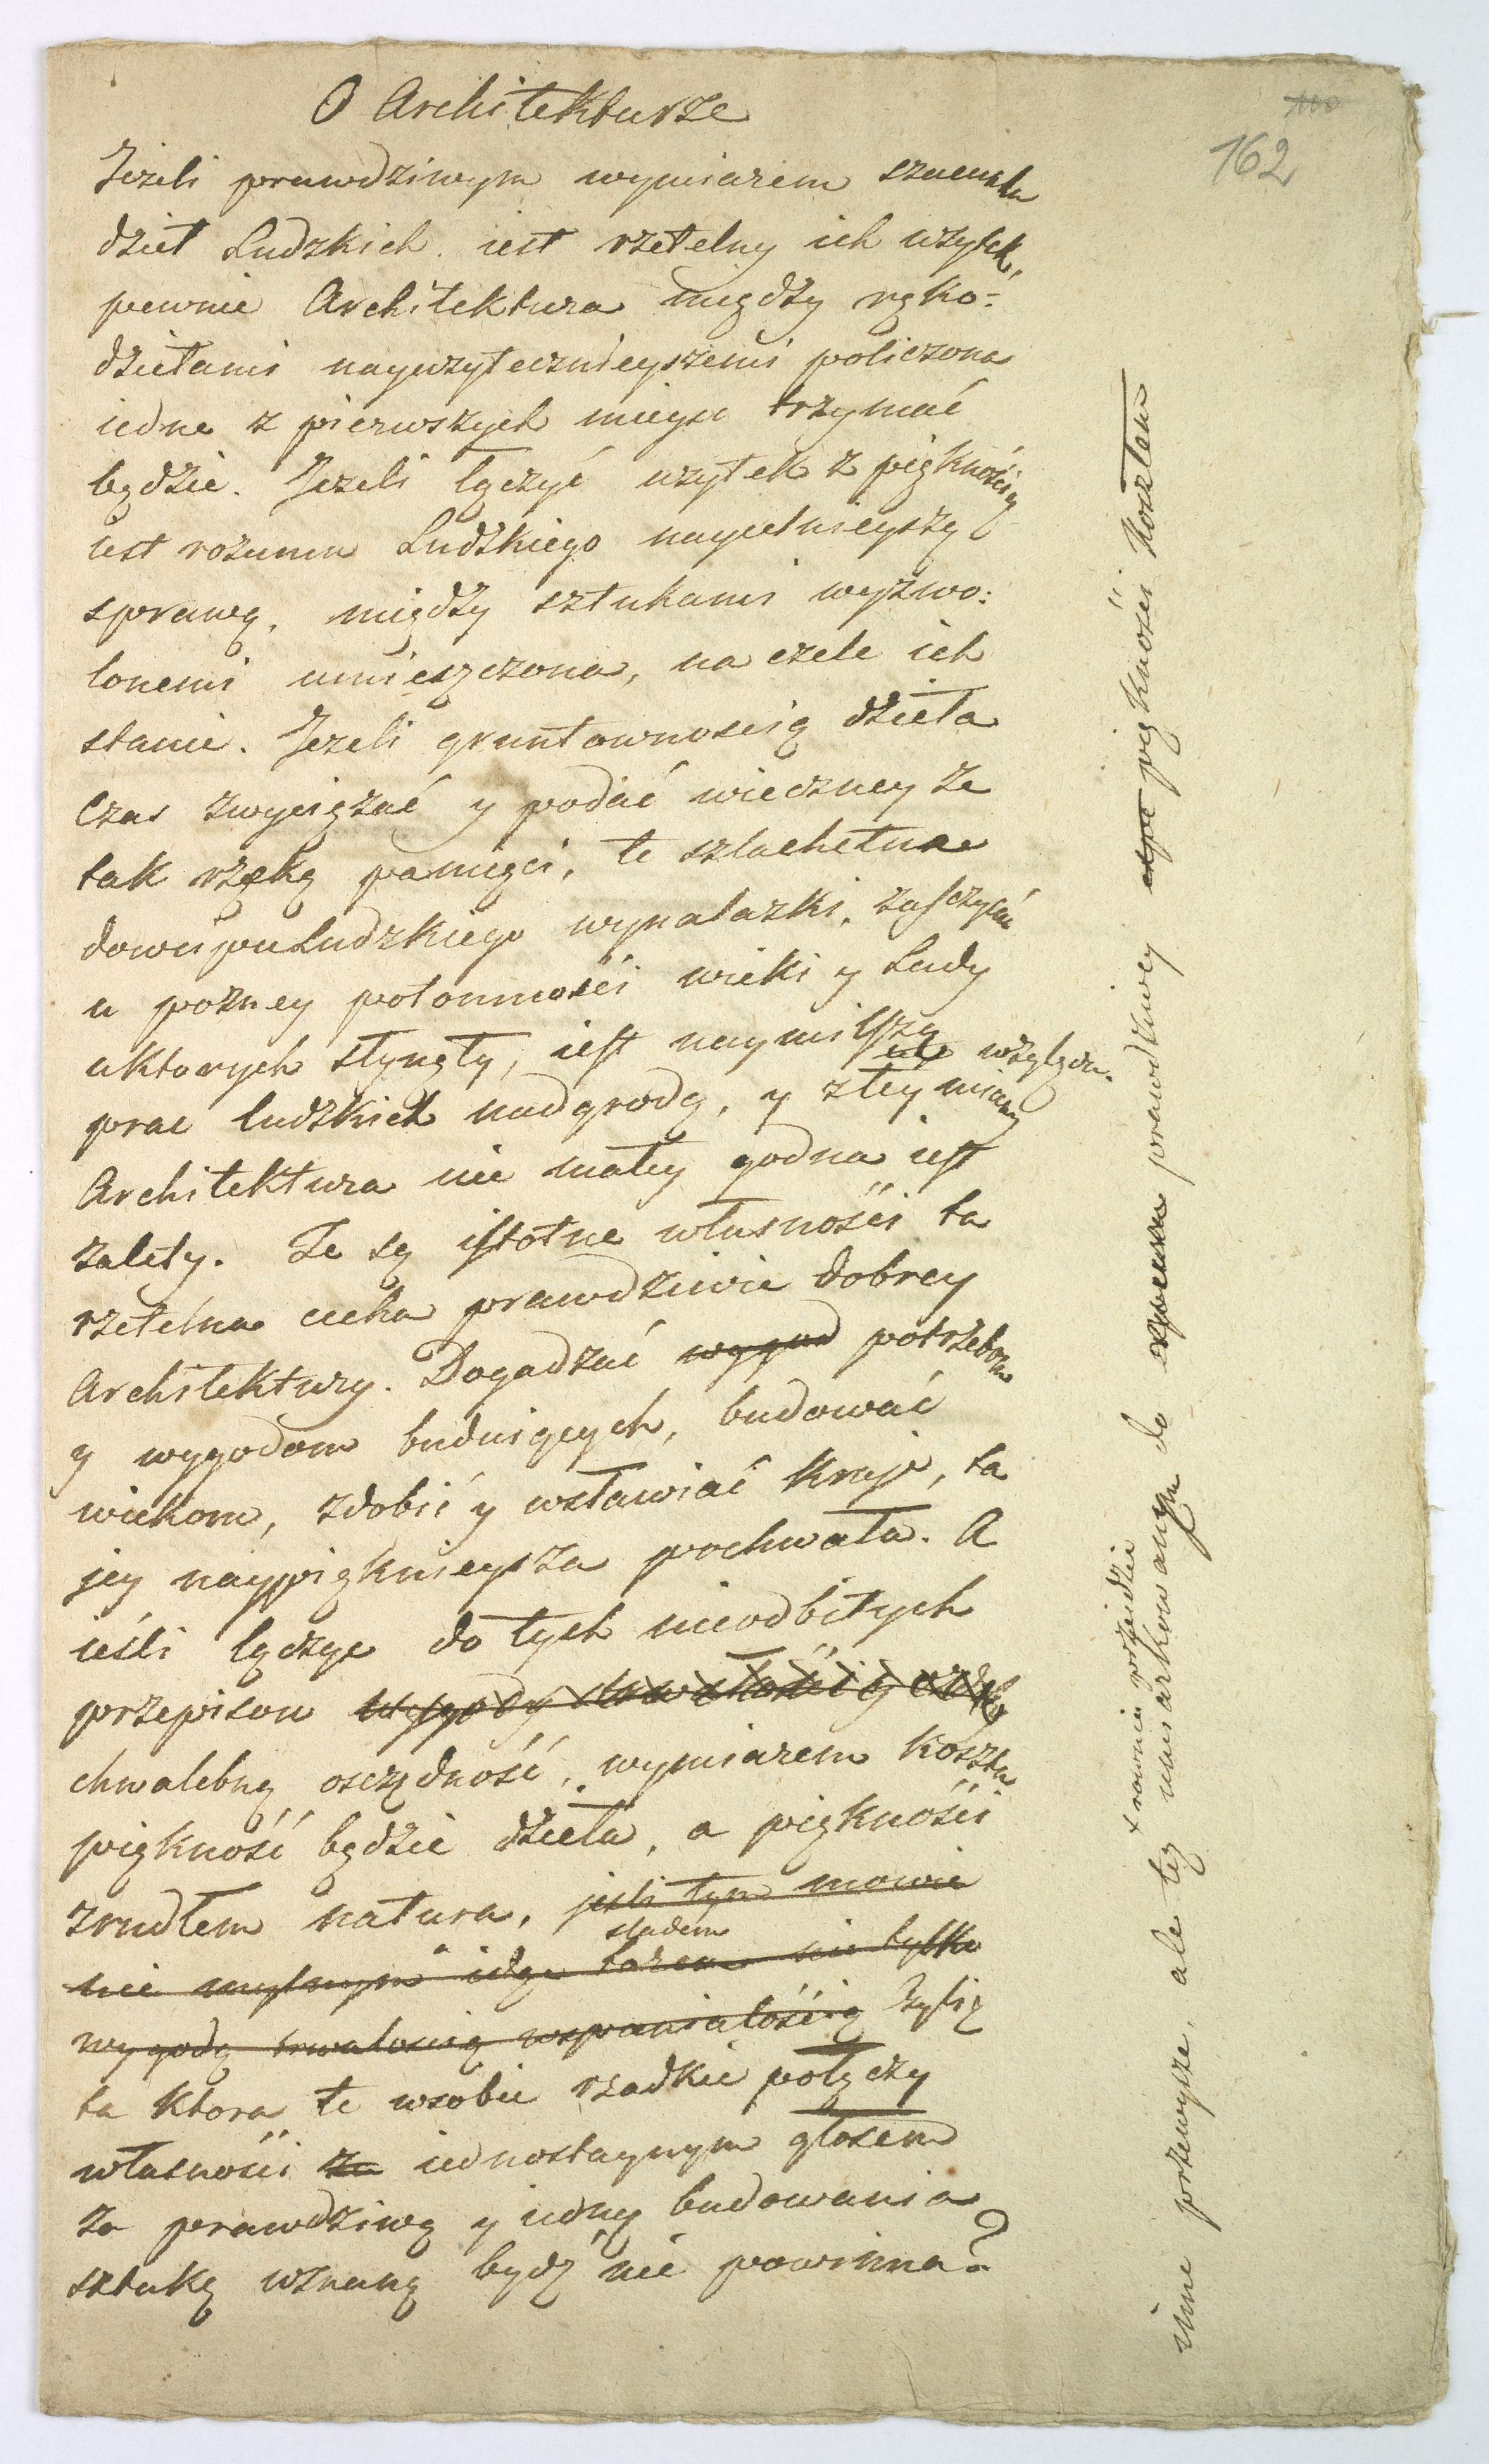 O Architekturze
162
Jezeli prawdziwym wymiarem szacunku
dzieł Ludzkich iest rzetelny ich uzytek,
pewnie Architektura między ręko:
dziełami nayuzytecznieyszemi policzona
iedne z pierwszych mieysc trzymać
będzie. Jezeli łączyć uzytek z pięknością
iest rozumu Ludzkiego naycelnieyszą
sprawą, między sztukami wyzwo:
lonemi umieszczona, na czele ich
stanie. Jezeli gruntownoscią dzieła
Czas zwyciężać y podać wieczney że
tak rzekę pamięci, te szlachetne
dowcipu Ludzkiego wynalazki, zaszczycać
u pozney potomności wieki y Ludy
uktorych słynęły, iest naymilszą
prac ludzkich nadgrodą, y ztey miary względu.
Architektura nie małey godna iest
zalety. Te są istotne własności ta
rzetelna cecha prawdziwie dobrey
Architektury. Dogadzać wygod potrzebom
y wygodom buduiących, budować
wiekom, zdobić y wsławiać kraje, ta
jey naypięknieysza pochwała. A
ieśli łączyc do tych nieodbitych
przepisow wygody trwałości y
chwalebną osczędność, wymiarem kosztu
piękność będzie dzieła, a piękności
zrudłem natura, jeśli tym mowie
sladem
nie mylnym idąc torem nie tylko
wygodą trwałoscią wspaniałością Tylię
ta ktora te wsobie rzadkie połączy
własności za iednostaynym głosem
za prawdziwą y iedną budowania
sztukę uznaną bydź nie powinna?
+ rownie poydzie
inne przewyzsze, ale tez umiarkowanym do prawdziwey piękności kosztem